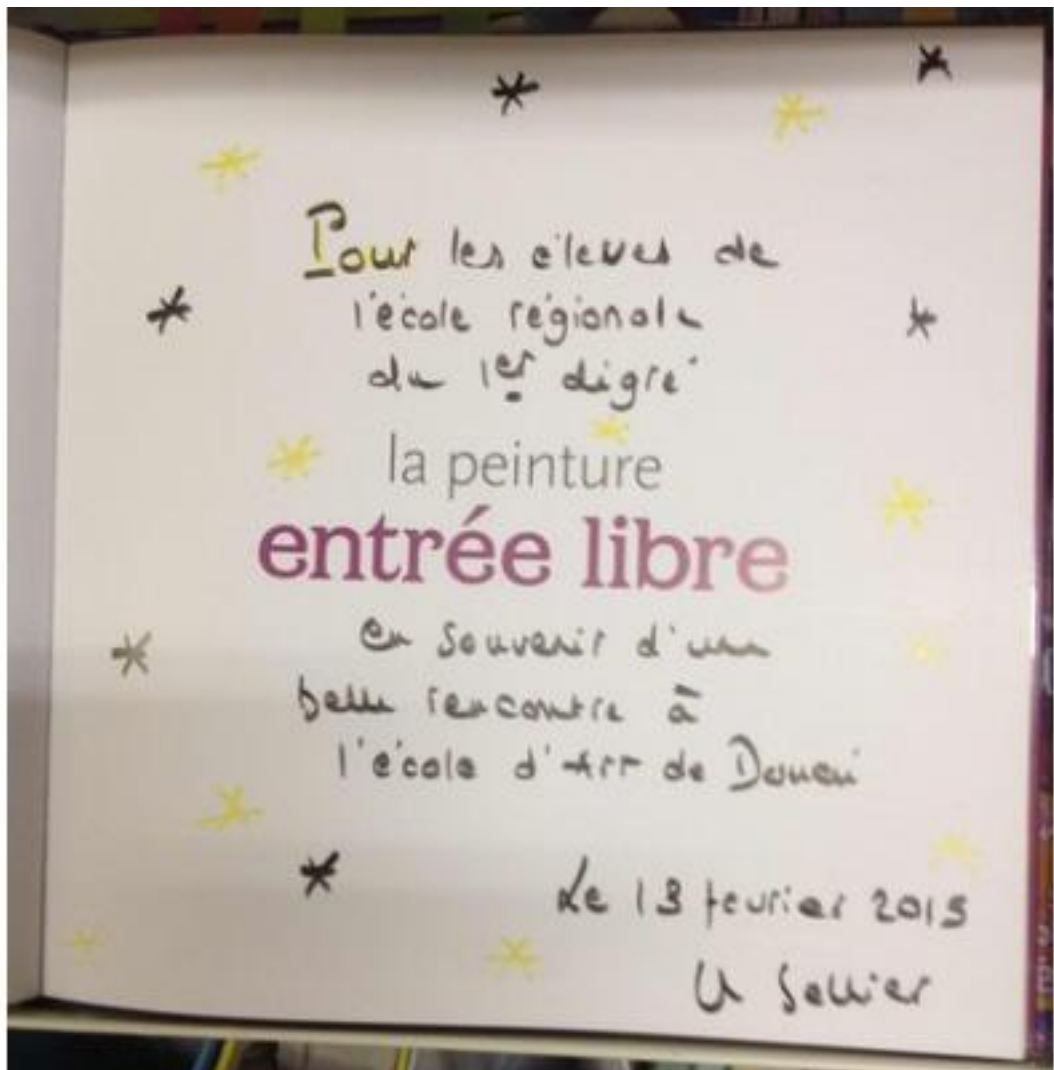 Pour les élèves de
l'école régionale
du 1er degré
la peinture
entrée libre
en souvenir d'une
belle rencontre à
l'école d'Art de Douai
Le 13 février 2015
Sellier